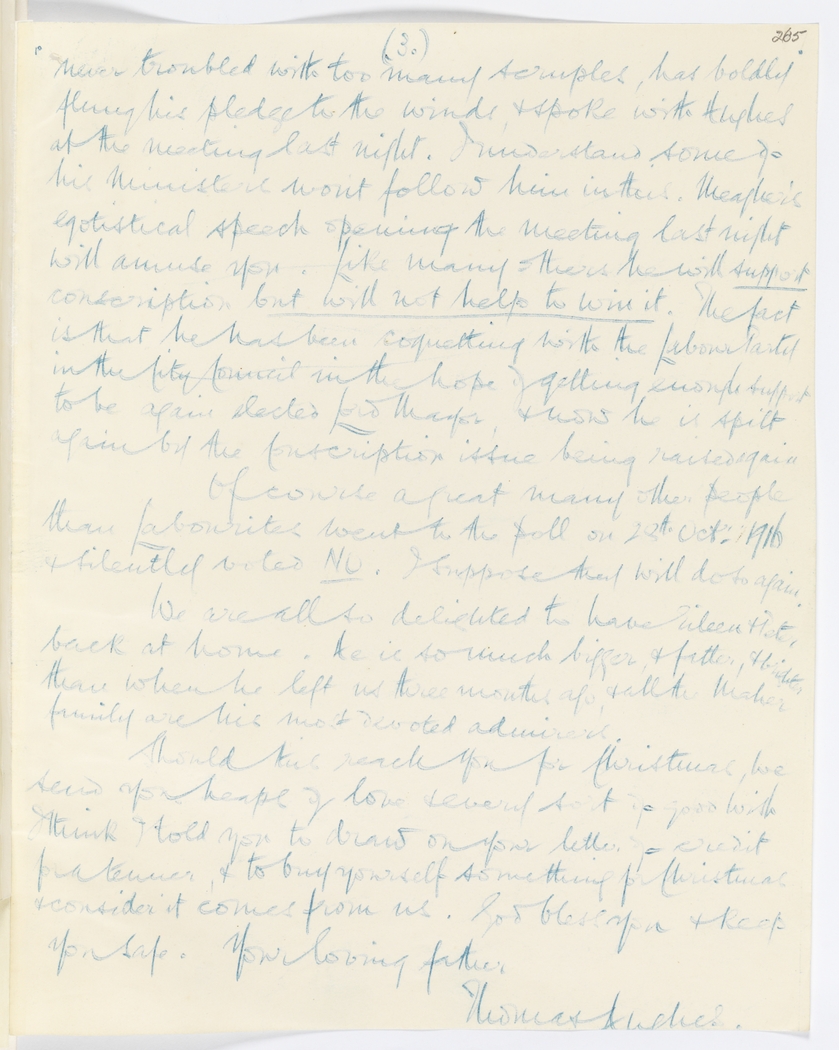 (3.)
265
never troubled with too many scruples, has boldly
flung his pledge to the winds, & spoke with Hughes
at the meeting last night. I understand some of
his Ministers wont follow him in this. Meagher's
egotistical speech opening the meeting last night
will amuse you. Like many others he will support
conscription but will not help to win it. The fact
is that he has been coquetting with the Labour Party
in the City Council in the hope of getting enough support
to be again elected Lord Mayor, & now he is spilt
again by the Conscription issue being raised again
Of course a great many other people
than Labourites went to the poll on 28th Oct. 1916
& silently voted NO. I suppose they will do so again.
We are all so delighted to have Eileen & Peter
back at home. He is so much bigger, & fatter, & brighter
than when he left us three months ago, & all the Maher
family are his most devoted admirers.
Should this reach you for Christmas, we
send you heaps of love & every sort of good wish
I think I told you to draw on your letter of credit
for a tenner, & to buy yourself something for Christmas
& consider it comes from us. God bless you & keep
you safe. Your loving father
Thomas Hughes.